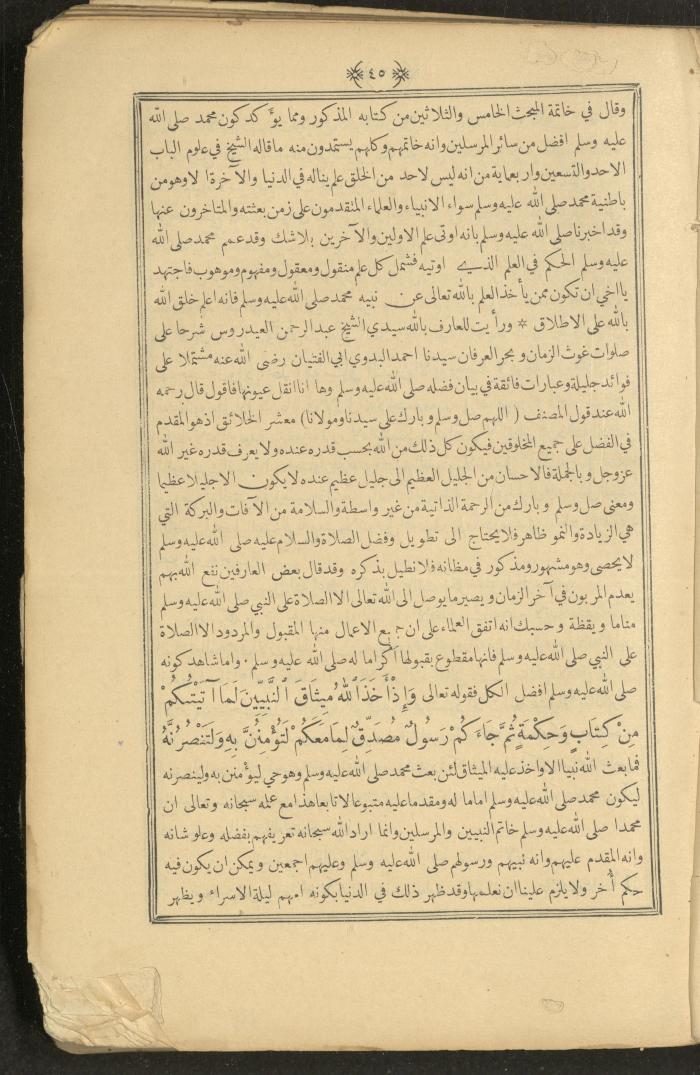 ٤٥
وقال في خاتمة المبحث الخامس والثلاثين من كتابه المذكور ومما يؤكد كون محمد صلى الله
عليه وسلم افضل من سائر المرسلين وانه خاتمهم وكلهم يستمدون منه ما قاله الشيخ في علوم الباب
الاحد والتسعين واربعماية من انه ليس لاحد من الخلق علم يناله في الدنيا والآخرة الا وهو من
باطنية محمد صلى الله عليه وسلم سواء الانبياء والعلماء المتقدمون على زمن بعثته والمتاخرون عنها
وقد اخبرنا صلى الله عليه وسلم بانه اوتي علم الاولين والآخرين بلا شك وقد عمم محمد صلى الله
عليه وسلم الحكم في العلم الذي اوتيه فشمل كل علم منقول ومعقول ومفهوم وموهوب فاجتهد
يا اخي ان تكون ممن يأخذ العلم بالله تعالى عن نبيه محمد صلى الله عليه وسلم فانه اعلم خلق الله
بالله على الاطلاق * ورأيت للعارف بالله سيدي الشيخ عبد الرحمن العيدروس شرحا على
صلوات غوث الزمان وبحر العرفان سيدنا احمد البدوي ابي الفتيان رضى الله عنه مشتملا على
فوائد جليلة وعبارات فائقة في بيان فضله صلى الله عليه وسلم وها انا انقل عيونها فاقول قال رحمه
الله عند قول المصنف ( اللهم صل وسلم وبارك على سيدنا ومولانا) معشر الخلائق اذ هو المقدم
في الفضل على جميع المخلوقين فيكون كل ذلك من الله بحسب قدره عنده ولا يعرف قدره غير الله
عز وجل وبالجملة فالاحسان من الجليل العظيم الى جليل عظيم عنده لا يكون الا جليلا عظيما
ومعنى صل وسلم وبارك من الرحمة الذاتية من غير واسطة والسلامة من الآفات والبركة التي
هي الزيادة والنمو ظاهر فلا يحتاج الى تطويل وفضل الصلاة والسلام عليه صلى الله عليه وسلم
لا يحصى وهو مشهور ومذكور في مظانه فلا نطيل بذكره وقد قال بعض العارفين نفع الله بهم
يعدم المربون في آخر الزمان ويصير ما يوصل الى الله تعالى الا الصلاة على النبي صلى الله عليه وسلم
مناما ويقظة وحسبك انه اتفق العلماء على ان جميع الاعمال منها المقبول والمردود الا الصلاة
على النبي صلى الله عليه وسلم فانها مقطوع بقبولها اكراما له صلى الله عليه وسلم . واما شاهد كونه
صلى الله عليه وسلم افضل الكل فقوله تعالى وَإِذْ أَخَذَ ٱللهُ مِيثَاقَ ٱلنَّبِيِّينَ لَمَا آتَيْتُكُمْ
مِنْ كِتَابٍ وَحِكْمَةٍ ثُمَّ جَاءَكُمْ رَسُولٌ مُصَدِّقٌ لِمَا مَعَكُمْ لَتُؤْمِنُنَّ بِهِ وَلَتَنْصُرُنَّهُ
فما بعث الله نبيا الا واخذ عليه الميثاق لئن بعث محمد صلى الله عليه وسلم وهو حي ليؤمنن به ولينصرنه
ليكون محمد صلى الله عليه وسلم اماما له ومقدما عليه متبوعا لا تابعا هذا مع علمه سبحانه وتعالى ان
محمدا صلى الله عليه وسلم خاتم النبيين والمرسلين وانما اراد الله سبحانه تعريفهم بفضله وعلو شانه
وانه المقدم عليهم وانه نبيهم ورسولهم صلى الله عليه وسلم وعليهم اجمعين ويمكن ان يكون فيه
حكم أُخر ولا يلزم علينا ان نعلمها وقد ظهر ذلك في الدنيا بكونه امهم ليلة الاسراء ويظهر